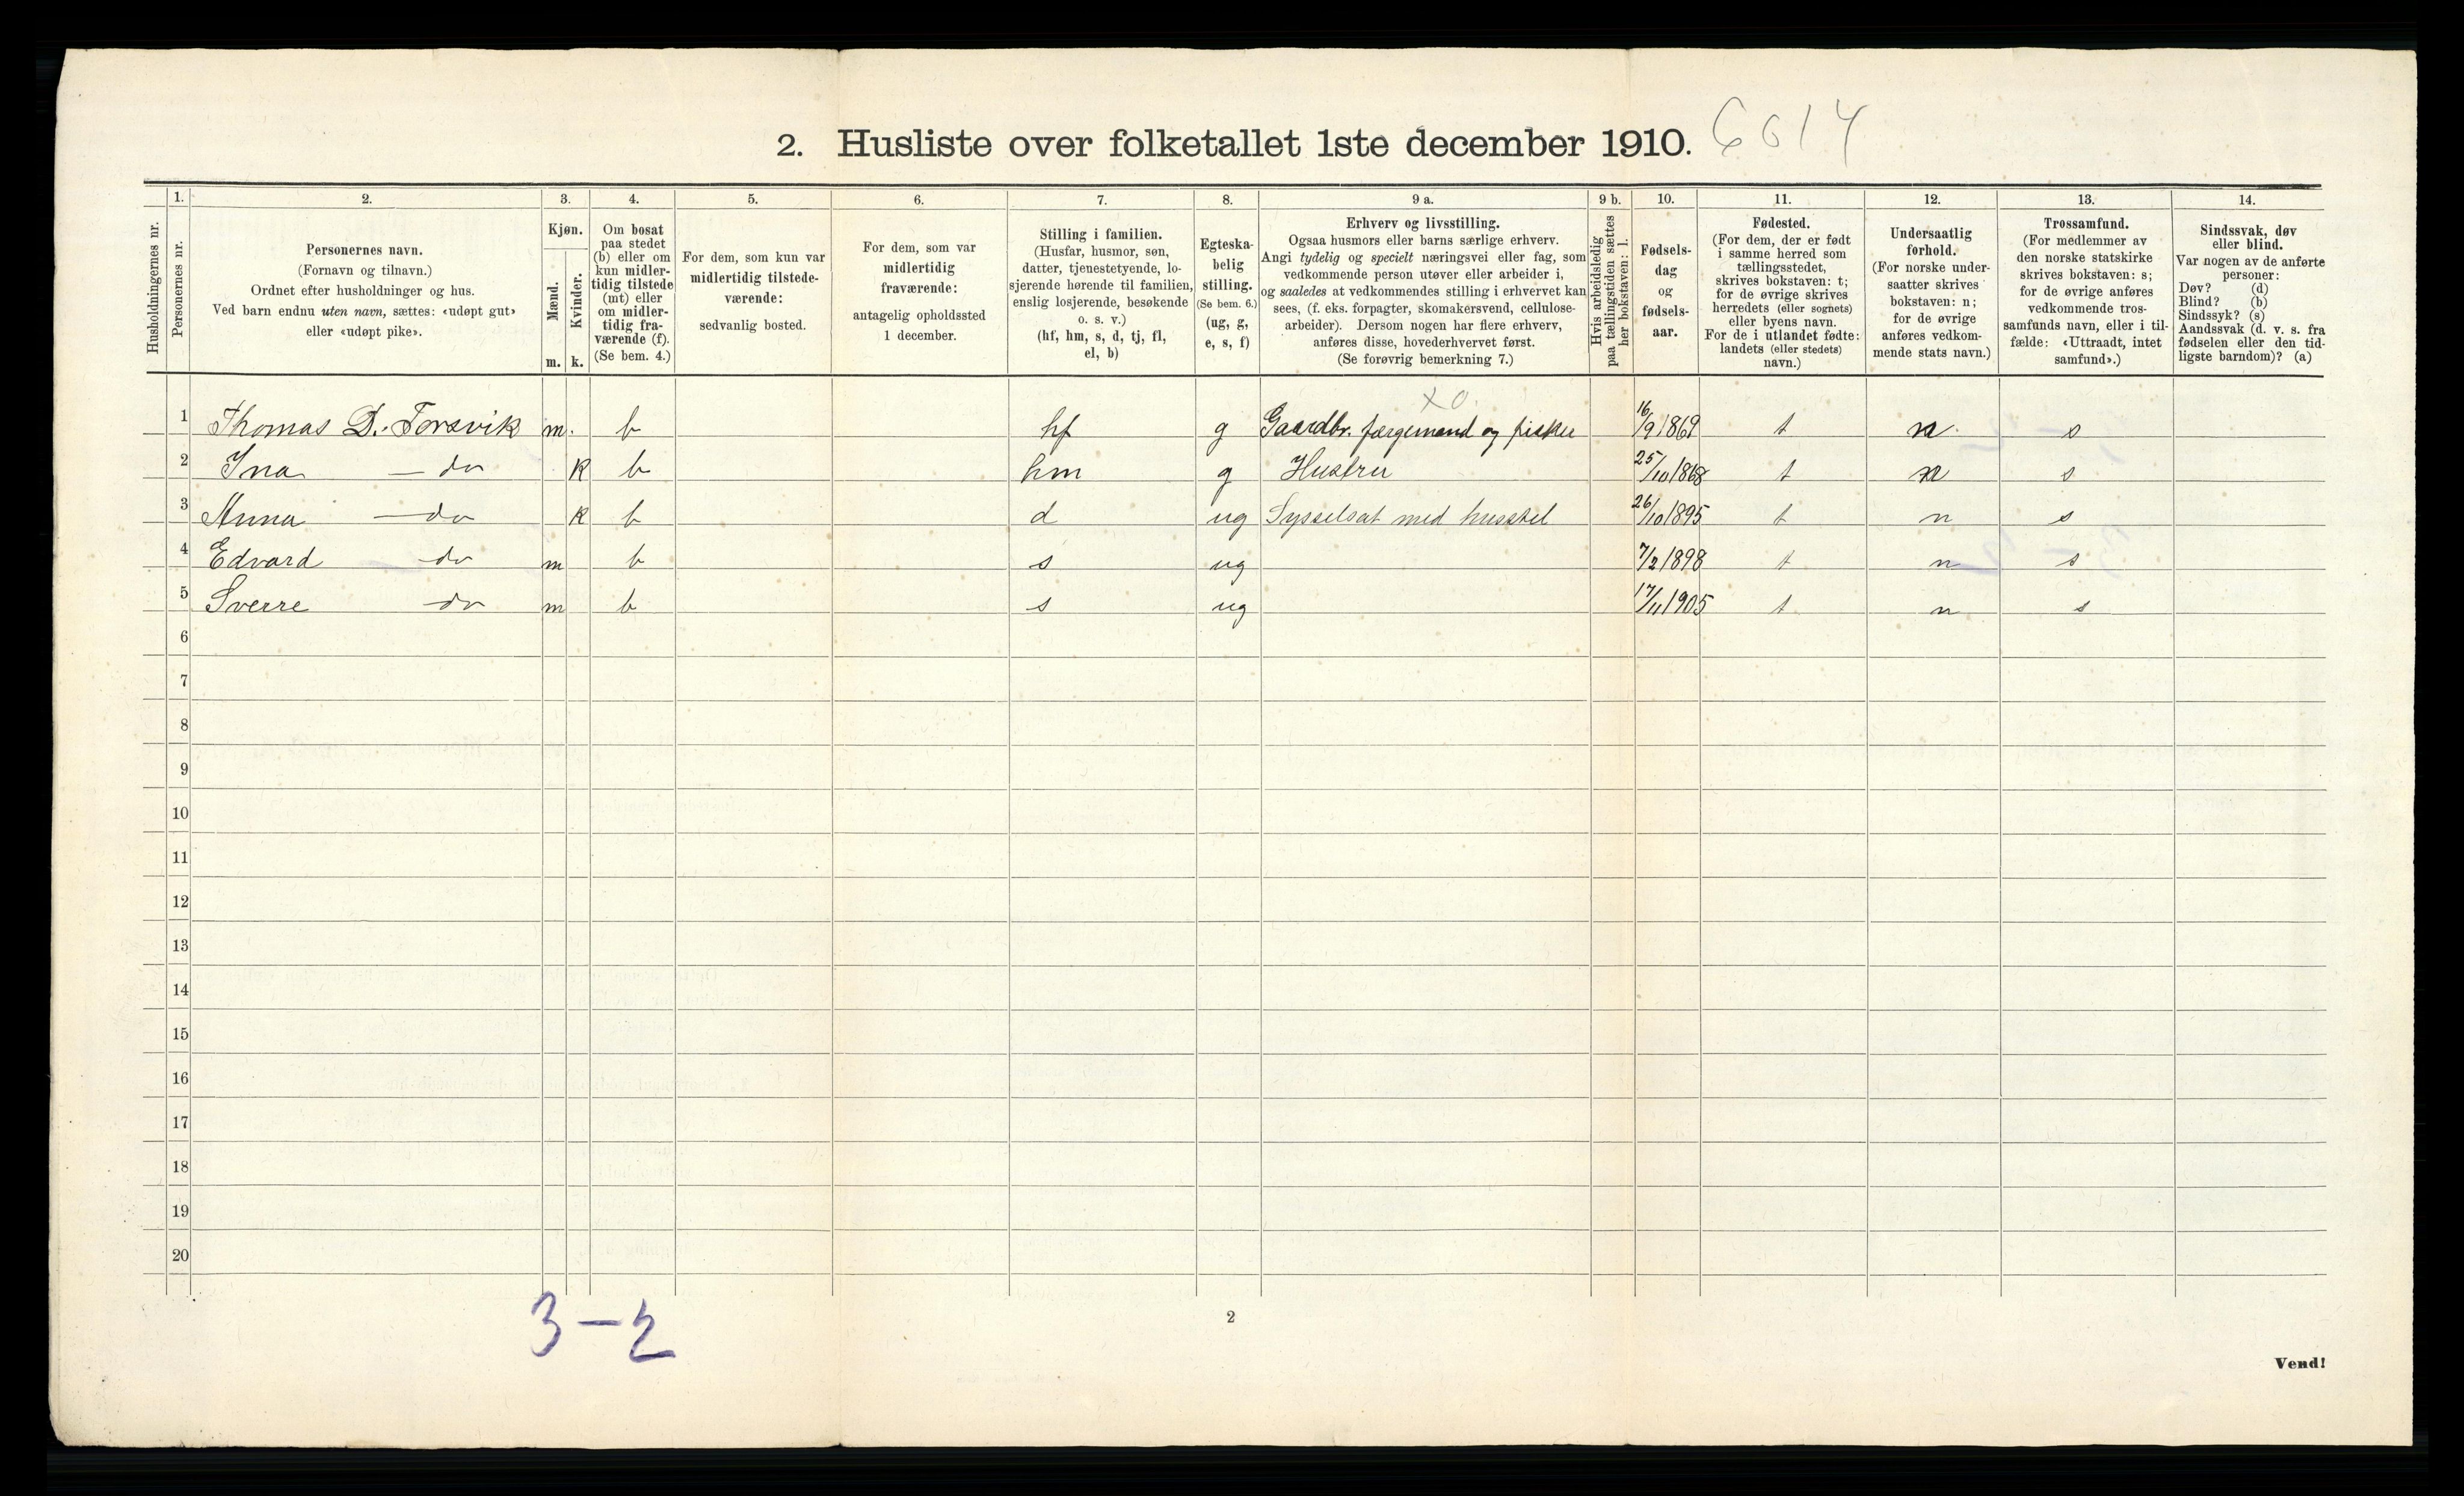 2. Husliste over folketallet 1ste december 1910. 6014
1. 2. 3. 4. 5. 6. 7. 8. 9 a. 9 b. 10. 11. 12. 13. 14.
Husholdningernes nr.
Personernes nr.
Personernes navn.
(Fornavn og tilnavn.)
Ordnet efter husholdninger og hus.
Ved barn endnu uten navn, sættes: «udøpt gut»
eller «udøpt pike».
Kjøn.
Mænd.
Kvinder.
m. k.
Om bosat
paa stedet
(b) eller om
kun midler-
tidig tilstede
(mt) eller
om midler-
tidig fra-
værende (f).
(Se bem. 4.)
For dem, som kun var
midlertidig tilstede-
værende:
sedvanlig bosted.
For dem, som var
midlertidig
fraværende:
antagelig opholdssted
1 december.
Stilling i familien.
(Husfar, husmor, søn,
datter, tjenestetyende, lo-
sjerende hørende til familien,
enslig losjerende, besøkende
o. s. v.)
(hf, hm, s, d, tj, fl,
el, b)
Egteska-
belig
stilling.
(Se bem. 6.)
(ug, g,
e, s, f)
Erhverv og livsstilling.
Ogsaa husmors eller barns særlige erhverv.
Angi tydelig og specielt næringsvei eller fag, som
vedkommende person utøver eller arbeider i,
og saaledes at vedkommendes stilling i erhvervet kan
sees, (f. eks. forpagter, skomakersvend, cellulose-
arbeider). Dersom nogen har flere erhverv,
anføres disse, hovederhvervet først.
(Se forøvrig bemerkning 7.)
Hvis arbeidsledig
paa tællingstiden sættes
her bokstaven: l.
Fødsels-
dag
og
fødsels-
aar.
Fødested.
(For dem, der er født
i samme herred som
tællingsstedet,
skrives bokstaven: t;
for de øvrige skrives
herredets (eller sognets)
eller byens navn.
For de i utlandet fødte:
landets (eller stedets)
navn.)
Undersaatlig
forhold.
(For norske under-
saatter skrives
bokstaven: n;
for de øvrige
anføres vedkom-
mende stats navn.)
Trossamfund.
(For medlemmer av
den norske statskirke
skrives bokstaven: s;
for de øvrige anføres
vedkommende tros-
samfunds navn, eller i til-
fælde: «Uttraadt, intet
samfund».)
Sindssvak, døv
eller blind.
Var nogen av de anførte
personer:
Døv? (d)
Blind? (b)
Sindssyk? (s)
Aandssvak (d. v. s. fra
fødselen eller den tid-
ligste barndom)? (a)
x o.
1 Thomas D. Torsvik m. b hf g Gaardbr. færgemand og fisker 16/9 1869 t n. s
2 Ina — do k b hm g Hustru 25/10 1868 t n s
3 Anna — do k b d ug Sysselsat med husstel 26/10 1895 t n s
4 Edvard do m b s ug 7/2 1898 t n s
5 Sverre do m b s ug 17/11 1905 t n s
6
7
8
9
10
11
12
13
14
15
16
17
18
19
20
3 – 2
2
Vend!